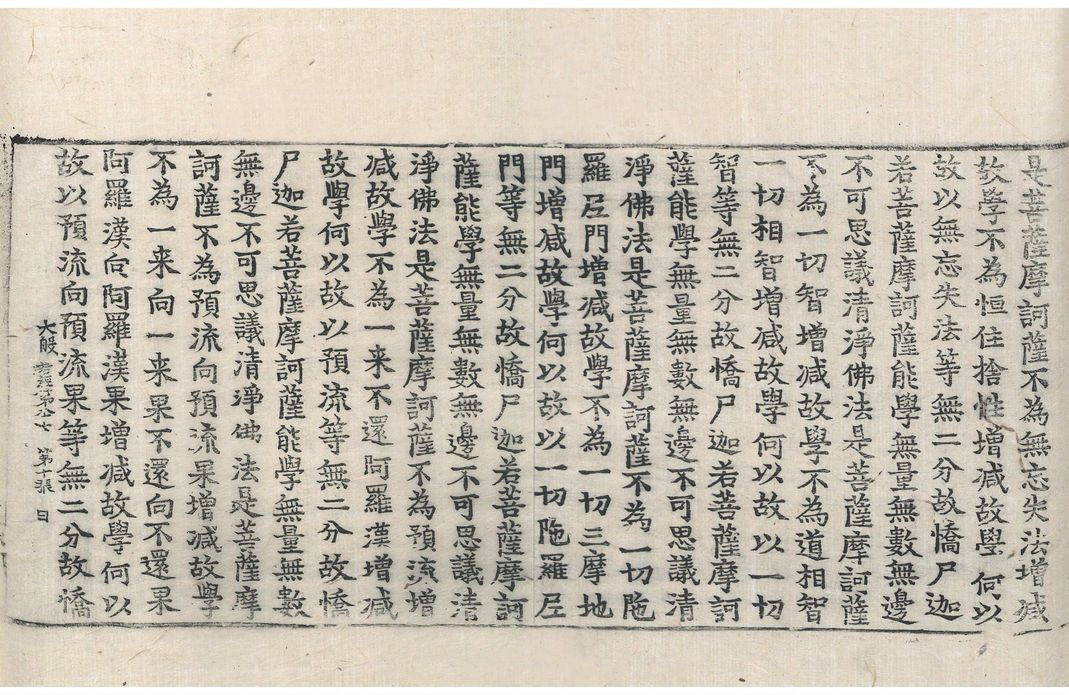 是菩薩摩訶薩不為無忘失法增減
故學不為恒住捨性增減故學何以
故以無忘失法等無二分故憍尸迦
若菩薩摩訶薩能學無量無數無邊
不可思議清淨佛法是菩薩摩訶薩
不為一切智增減故學不為道相智
一切相智增減故學何以故以一切
智等無二分故憍尸迦若菩薩摩訶
薩能學無量無數無邊不可思議清
淨佛法是菩薩摩訶薩不為一切陁
羅尼門增減故學不為一切三摩地
門增減故學何以故以一切陁羅尼
門等無二分故憍尸迦若菩薩摩訶
薩能學無量無數無邊不可思議清
淨佛法是菩薩摩訶薩不為預流增
減故學不為一来不還阿羅漢增減
故學何以故以預流等無二分故憍
尸迦若菩薩摩訶薩能學無量無數
無邊不可思議清淨佛法是菩薩摩
訶薩不為預流向預流果增減故學
不為一来向一来果不還向不還果
阿羅漢向阿羅漢果增減故學何以
故以預流向預流果等無二分故憍
大般若經第八十七 第十張 日